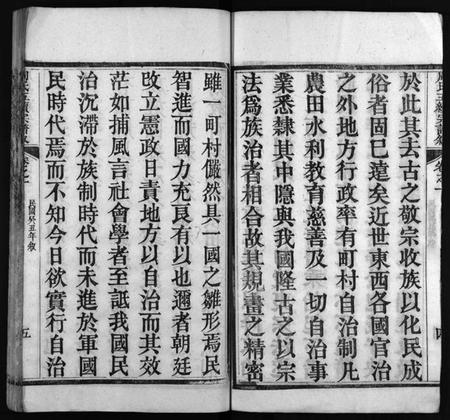 於此其去古之敬宗收族以化民成
俗者固已遠矣近世東西各國官治
之外地方行政率有町村自治制凡
農田水利教育慈善及一切自治事
業悉隸其中隱與我國隆古之以宗
法爲族治者相合故其規畫之精密
雖一町村儼然具一國之雛形焉民
智進而國力充良有以也邇者朝廷
改立憲政日責地方以自治而其效
茫如捕風言社會學者至詆我國民
治沉滯於族制時代而未進於軍國
民時代焉而不知今日欲實行自治
五